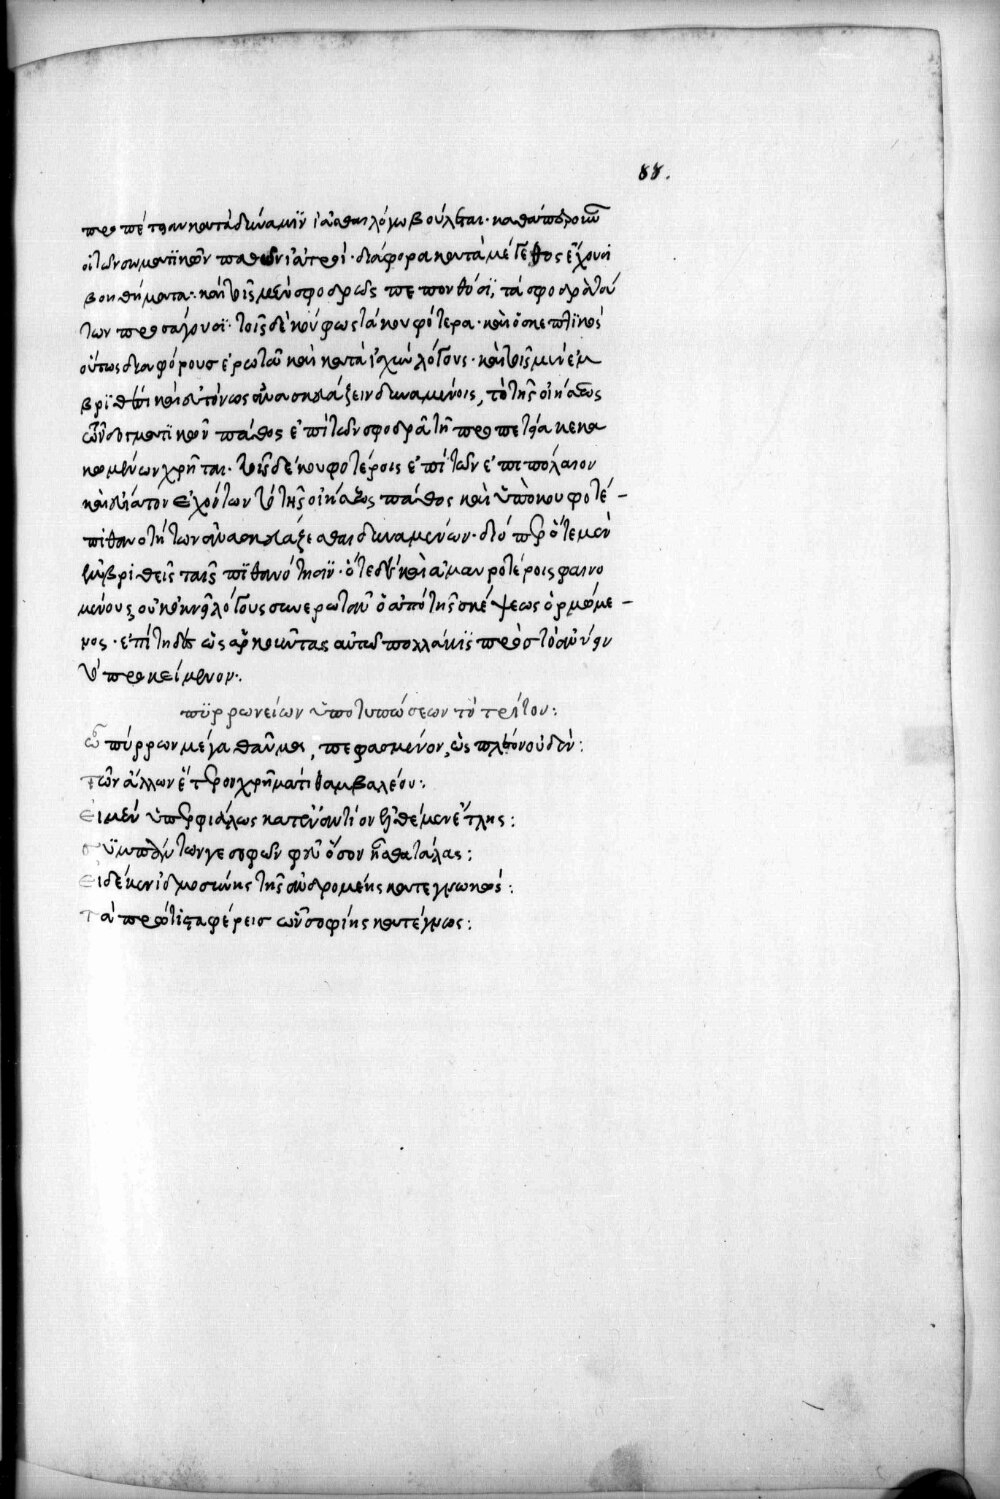 88.
προπέτειαν κατὰ δύναμιν ἰᾶσθαι λόγω βούλεται· καθάπερ οὖν
οἱ τῶν σωματικῶν παθῶν ἰατροὶ· διάφορα κατὰ μέγεθος ἔχουσι
βοηθήματα· καὶ τοῖς μὲν σφοδρῶς πεπονθόσι, τὰ σφοδρὰ τού
των προσάγουσι· τοῖς δὲ κούφως τὰ κουφότερα· καὶ ὁ σκεπτικὸς
οὕτως διαφόρους ἐρωτᾶ καὶ κατὰ ἰσχὺν λόγους· καὶ τοῖς μὲν ἐμ
βριθέσι καὶ εὐτόνως ἀνασκευάζειν δυναμένοις, τὸ τῆς οἰήσεως
τῶν δογματικῶν πάθος ἐπὶ τῶν σφοδρᾶ τῆ προπετεία κεκα
κωμένων χρῆται· τοῖς δὲ κουφοτέροις ἐπὶ τῶν ἐπιπόλαιον
καὶ εὐίατον ἐχόντων τὸ τῆς οἰήσεως πάθος καὶ ὑπὸ κουφοτέ–
πιθανοτήτων ἀνασκευάζεσθαι δυναμένων· διόπερ ὁτὲ μὲν
ἐμβριθεῖς ταῖς πιθανότησιν· ὁτὲ δὲ καὶ ἀμαυροτέροις φαινο
μένους οὐκ ὀκνεῖ λόγους συνερωτᾶν ὁ ἀπὸ τῆς σκέψεως ὁρμώμε–
νος· ἐπίτηδες ὡς ἀρκοῦντας αὐτῶ πολλάκις πρὸς τὸ ἀνύειν
τὸ προκείμενον·.
πυρρωνείων ὑποτυπώσεων τὸ τρίτον:
ὦ πύρρων μέγα θαῦμα, πεφασμένον, ὡς πλέον οὐδὲν:
τῶν ἄλλων ἑτέρου χρήματι θαμβαλέου:.
Εἰ μὲν ὑπερφιάλως κατεναντίον ἐλθέμεν ἔτλης:
συμπάντων γε σοφῶν φεῦ ὅσον ἦσθα τάλας:
Εἰ δέ κεν ἰδμοσύνης τῆς ἀνδρομέης κατεγνωκὼς:
Τὰ πρώτιστα φέρεις ὧν σοφίης κατέγνως: